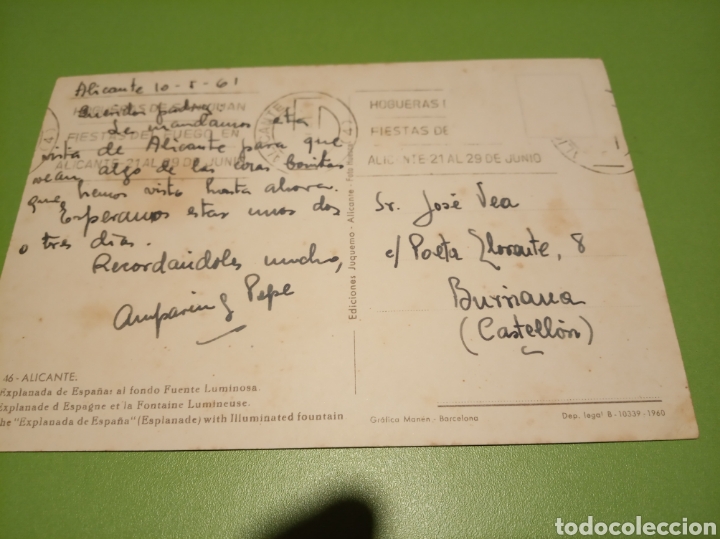 Alicante 10-5-61
Queridos padres:
Les mandamos esta
vista de Alicante para que
vean algo de las cosas bonitas
que hemos visto hasta ahora.
Esperamos estar unos dos
o tres días.
Recordándoles mucho,
Amparin y Pepe
HOGUERAS DE SAN JUAN
FIESTAS DE FUEGO EN
ALICANTE 21 AL 29 DE JUNIO
ALICANTE
HOGUERAS
FIESTAS DE
ALICANTE 21 AL 29 DE JUNIO
Sr. José Vea
c/ Poeta Llorente, 8
Burriana
(Castellón)
Ediciones Juquemo - Alicante
46 - ALICANTE.
Explanada de España: al fondo Fuente Luminosa.
Explanade d'Espagne et la Fontaine Lumineuse.
he "Explanada de España" (Esplanade) with Illuminated fountain
Gráfica Manén - Barcelona
Dep. legal B - 10339 - 1960
todocoleccion